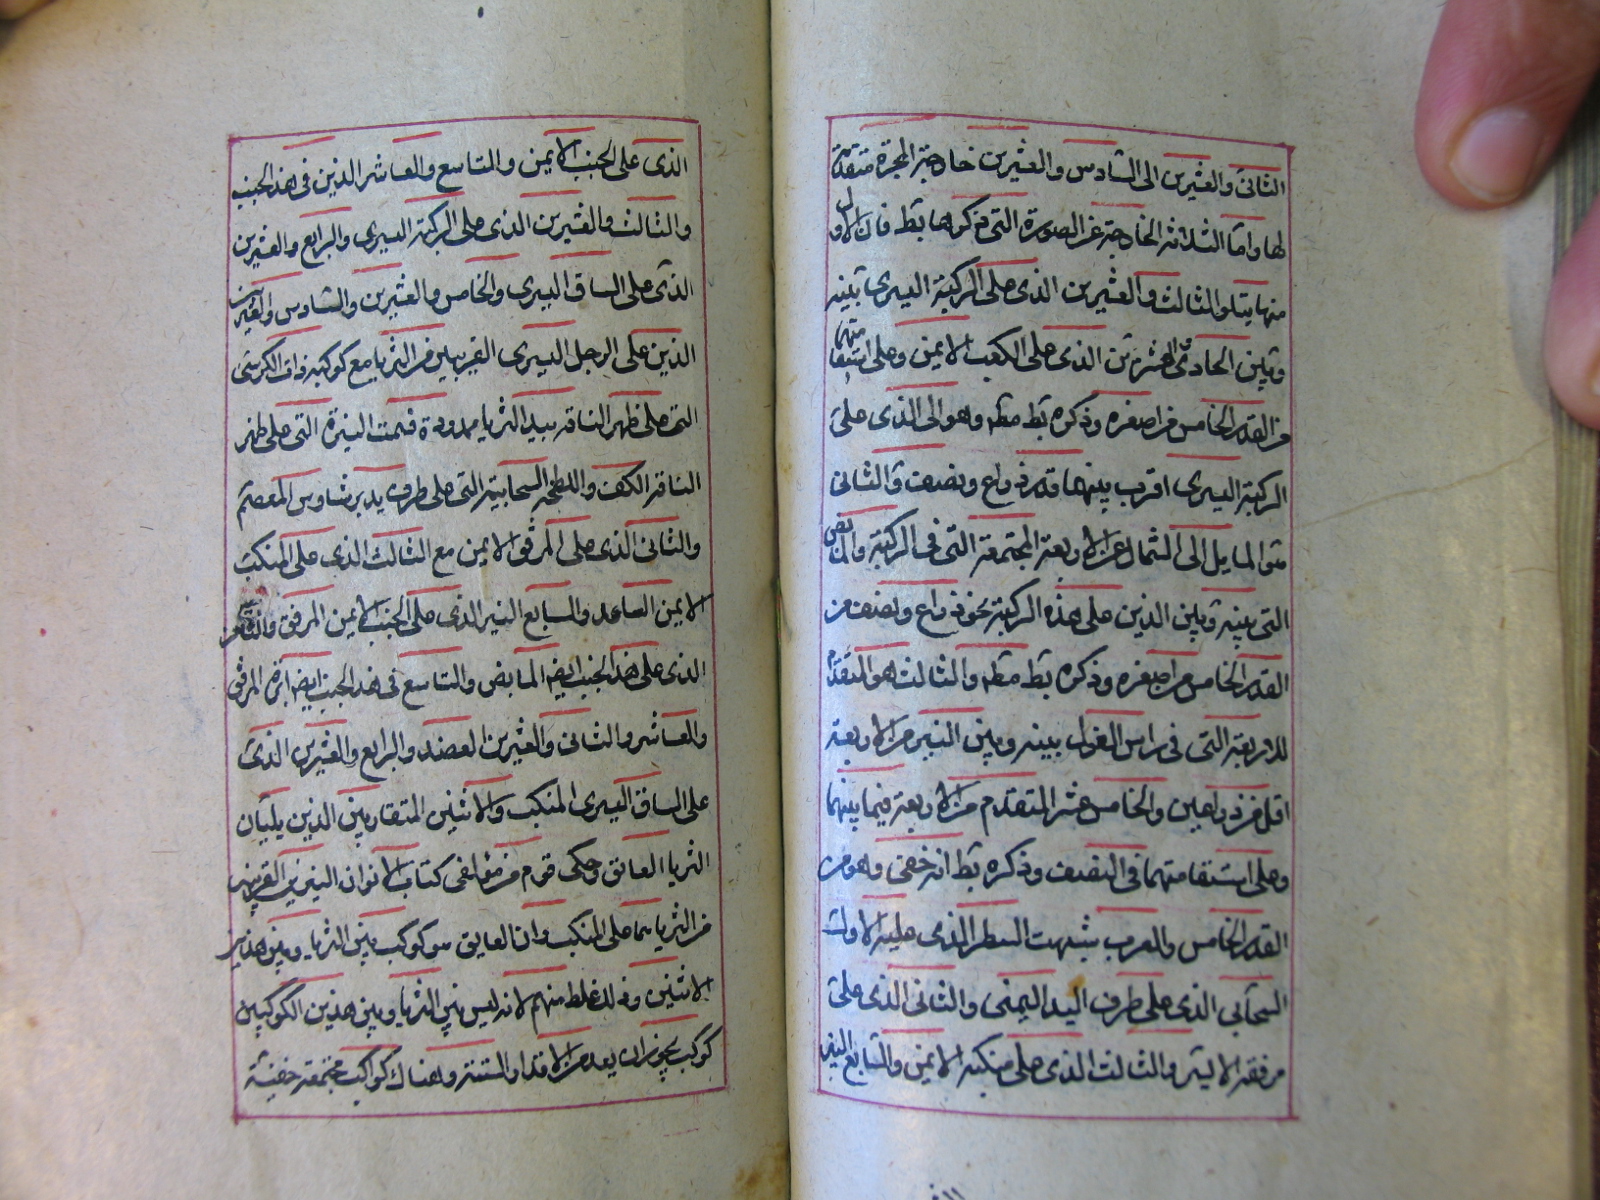 الثانى والعشرين الى السادس والعشرين خارجة المجرة متقدمة
لها واما الثلاثة الخارجة عن الصورة التى ذكرها بط فان الاول
منها يتلو الثالث والعشرين الذى على الركبة اليسرى بينه
وبين الحادى العشرين الذى على الكعب الايمن وعلى استقامتهما
من القدر الخامس من اصغره وذكره بط مطلقه وهو الى الذى على
الركبة اليسرى اقرب بينهما قدر ذراع ونصف والثانى
هو المايل الى الشمال عن الاربعة المجتمعة التى فى الركبة والمابض
التى بينه وبين الذين على هذه الركبة نحو ذراع ونصف من
القدر الخامس من اصغره وذكره بط مطلقه والثالث هو المتقدم
للاربعة التى فى راس الغول بينه وبين النير من الاربعة
اقل من ذراعين والخامس عشر المتقدم من الاربعة فيما بينهما
وعلى استقامتهما فى النصف وذكره بط انه خفى وهو من
القدر الخامس والعرب شبهت السطر الذى عليه الاول
السحابى الذى على طرف اليد اليمنى والثانى الذى على
مرفقه الايمن والثالث الذى على منكبه الايمن والسابع النير
الذى على الجنب الايمن والتاسع والعاشر الذين فى هذا الجنب
والثالث والعشرين الذى على الركبة اليسرى والرابع والعشرين
الذى على الساق اليسرى والخامس والعشرين والسادس والعشرين
الذين على الرجل اليسرى القريبين من الثريا مع كوكبة ذات الكرسى
التى على ظهر الناقه بيد الثريا ممدودة فسمت النيرة التى على ظهر
الناقة الكف واللطخه السحابية التى على طرف يد برشاوس المعصم
والثانى الذى على المرفق الايمن مع الثالث الذى على المنكب
الايمن الساعد والسابع النير الذى على الجنب الايمن المرفق
الذى على هذا الجنب ايضا المابض والتاسع فى هذا الجنب ايضا ابرة المرفق
والعاشر والثانى والعشرين العضد والرابع والعشرين الذى
على الساق اليسرى المنكب والاثنين المتقاربين الذين يليان
الثريا العاتق وحكى قوم من مؤلفى كتاب الانوان النيرين القريبين
من الثريا هما على المنكب وان العاتق هو كوكب بين الثريا وبين هذين
الاثنين وذلك غلط منهم لانه ليس بين الثريا وبين هذين الكوكبين
كوكب يجوز ان يعد من الاقدار الستة وهناك كواكب مجتمعة خفية